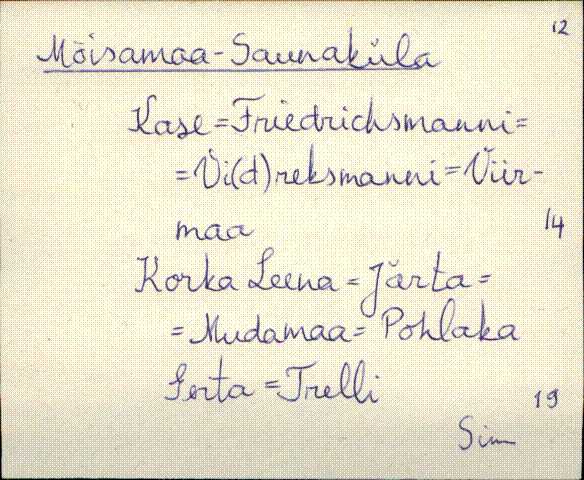 12
Mõisamaa-Saunaküla
Kase = Friedrichsmanni =
= Vi(d)reksmanni = Viir-
maa
14
Korka Leena = Järta =
= Mudamaa = Pohlaka
Gerta = Trelli
19
Sim